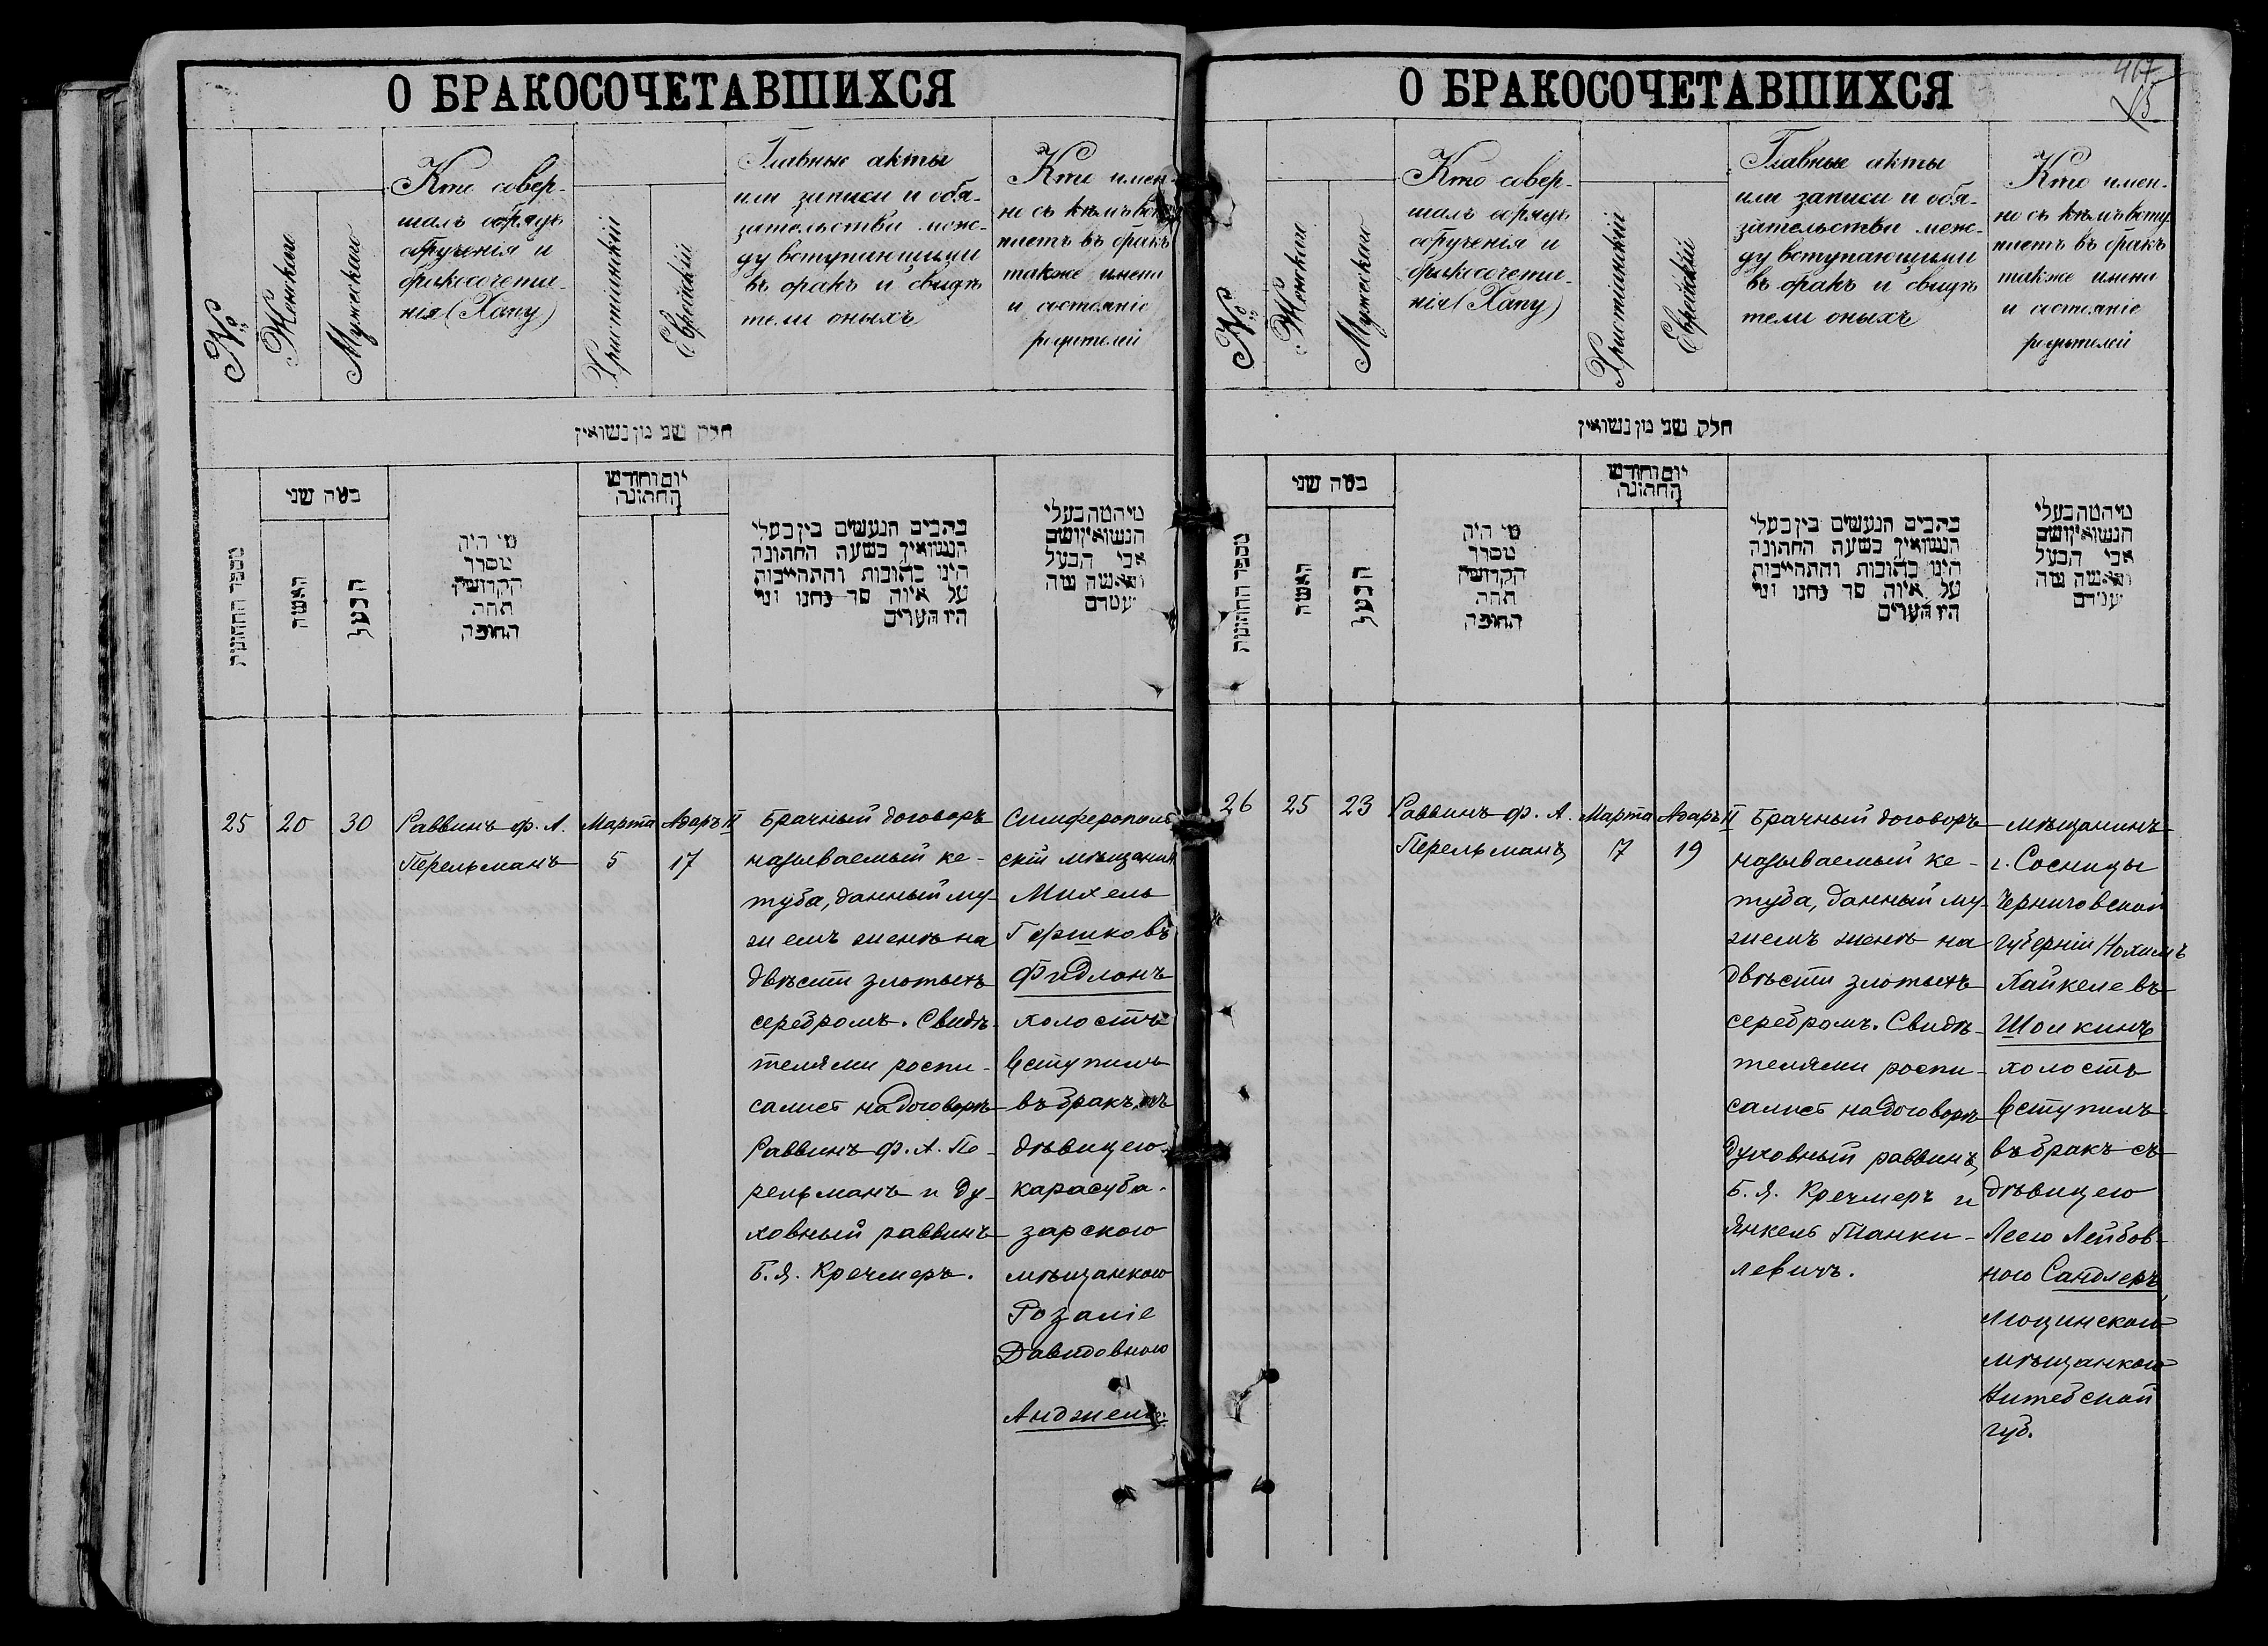 О БРАКОСОЧЕТАВШИХСЯ
№
Женскаго
Мужескаго
Кто совер-
шалъ обрядъ
обрученія и
бракосочета-
нія (Хапу)
Христіанскій
Еврейскій
Главные акты
или записи и обя-
зательства меж-
ду вступающими
въ бракъ и свидѣ
тели оныхъ
Кто имен-
но съ кѣмъ всту
паетъ въ бракъ
также имена
и состояніе
родителей
חלק שני מן נשואין
מספר החתונות
כמה שני
האשה
הבעל
מי היה
מסדר
הקדושין
תחת
החופה
יום וחודש
החתונה
כתבים הנעשים בין בעלי
הנשואין בשעת החתונה
היינו כתובות והתחייבות
על איזה סך נתנו ומי
היו העדים
מי המה בעלי
הנשואין ושם
אבי הבעל
והאשה
25
20
30
Раввинъ Ф. А.
Перельманъ
Марта
5
Адаръ II
17
Брачный договоръ
называемый ке-
туба, данный му-
жемъ женѣ на
двѣсти злотыхъ
серебромъ. Свидѣ-
телями роспи-
сались на договорѣ
Раввинъ Ф. А. Пе-
рельманъ и ду-
ховный раввинъ
Б. Я. Кречмеръ.
Симферополь
скій мѣщанинъ
Михель
Гершковъ
Фидлонъ
холостъ
вступилъ
въ бракъ съ
дѣвицею
карасуба-
зарскою
мѣщанкою
Розаліе
Давидовною
О БРАКОСОЧЕТАВШИХСЯ
417
15
№
Женскаго
Мужескаго
Кто совер-
шалъ обрядъ
обрученія и
бракосочета-
нія (Хапу)
Христіанскій
Еврейскій
Главные акты
или записи и обя-
зательства меж-
ду вступающими
въ бракъ и свидѣ
тели оныхъ
Кто имен-
но съ кѣмъ всту
паетъ въ бракъ
также имена
и состояніе
родителей
חלק שני מן נשואין
מספר החתונות
כמה שני
האשה
הבעל
מי היה
מסדר
הקדושין
תחת
החופה
יום וחודש
החתונה
כתבים הנעשים בין בעלי
הנשואין בשעת החתונה
היינו כתובות והתחייבות
על איזה סך נתנו ומי
היו העדים
מי המה בעלי
הנשואין ושם
אבי הבעל
והאשה
26
25
23
Раввинъ Ф. А.
Перельманъ
Марта
17
Адаръ II
19
Брачный договоръ
называемый ке-
туба, данный му-
жемъ женѣ на
двѣсти злотыхъ
серебромъ. Свидѣ-
телями роспи-
сались на договорѣ
Духовный раввинъ
Б. Я. Кречмеръ и
Янкель Танки-
левичъ.
мѣщанинъ
г. Сосницы
Черниговской
губерніи Нохимъ
Хайкелевъ
Шоикинъ
холостъ
вступилъ
въ бракъ съ
дѣвицею
Леею Лейбов-
ною Сандлеръ,
Люцинскою
мѣщанкою
Витебской
губ.